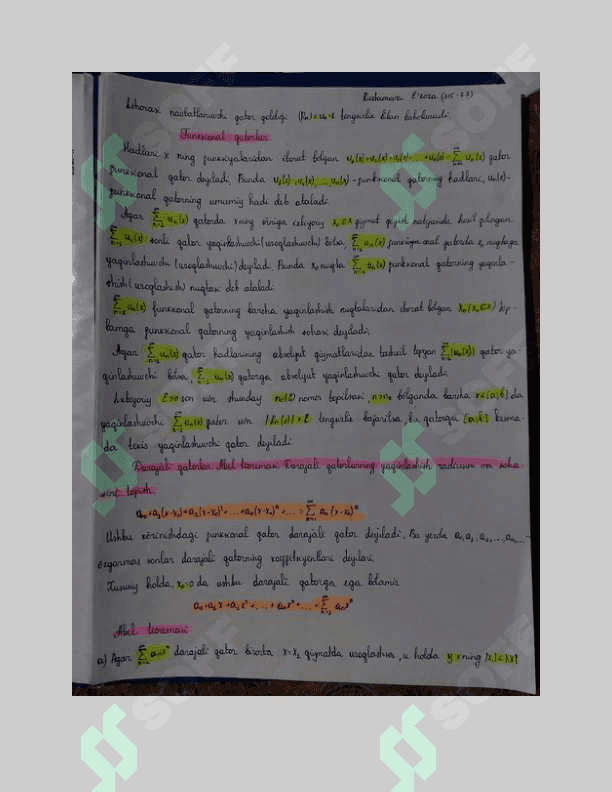 Rustamova (215-23)
Ishorasi navbatlanuvchi qator qoldig'i tengsizlik bilan baholanadi.
Funksional qatorlar
Hadlari x ning funksiyalaridan iborat bo'lgan u₁(x)+u₂(x)+u₃(x)+...+uₙ(x)=∑uₙ(x) qator
funksional qator deyiladi. Bunda u₁(x), u₂(x), ..., uₙ(x) - funksional qatorning hadlari, uₙ(x)-
funksional qatorning umumiy hadi deb ataladi.
Agar ∑uₙ(x) qatorda x ning o'rniga ixtiyoriy x₀∈X qiymat qo'yish natijasida hosil qilingan
∑uₙ(x₀) sonli qator yaqinlashuvchi (uzoqlashuvchi) bo'lsa, ∑uₙ(x) funksional qatorda x₀ nuqtaga
yaqinlashuvchi (uzoqlashuvchi) deyiladi. Bunda x₀ nuqta ∑uₙ(x) funksional qatorning yaqinla-
shish (uzoqlashish) nuqtasi deb ataladi.
∑uₙ(x) funksional qatorning barcha yaqinlashish nuqtalaridan iborat bo'lgan X₀(X₀⊂X) to'p-
lamga funksional qatorning yaqinlashish sohasi deyiladi.
Agar ∑uₙ(x) qator hadlarining absolyut qiymatlaridan tashkil topgan ∑|uₙ(x)| qator ya-
qinlashuvchi bo'lsa, ∑uₙ(x) qatorga absolyut yaqinlashuvchi qator deyiladi.
Ixtiyoriy ε>0 son uchun shunday n₀(ε) nomer topilsaki n>n₀ bo'lganda barcha x∈[a;b] da
yaqinlashuvchi ∑uₙ(x) qator uchun |Rₙ(x)|<ε tengsizlik bajarilsa, bu qatorga [a;b] kesma-
da tekis yaqinlashuvchi qator deyiladi.
Darajali qatorlar. Abel teoremasi. Darajali qatorlarning yaqinlashish radiusini va soha-
sini topish
a₀+a₁(x-x₀)+a₂(x-x₀)²+...+aₙ(x-x₀)ⁿ+...=∑aₙ(x-x₀)ⁿ
Ushbu ko'rinishdagi funksional qator darajali qator deyiladi. Bu yerda a₀, a₁, a₂, ..., aₙ, ... -
o'zgarmas sonlar darajali qatorning koeffitsiyentlari deyiladi.
Xususiy holda, x₀=0 da ushbu darajali qatorga ega bo'lamiz
a₀+a₁x+a₂x²+...+aₙxⁿ+...=∑aₙxⁿ
Abel teoremasi
a) Agar ∑aₙxⁿ darajali qator biror x=x₁ qiymatda uzoqlashsa, u holda